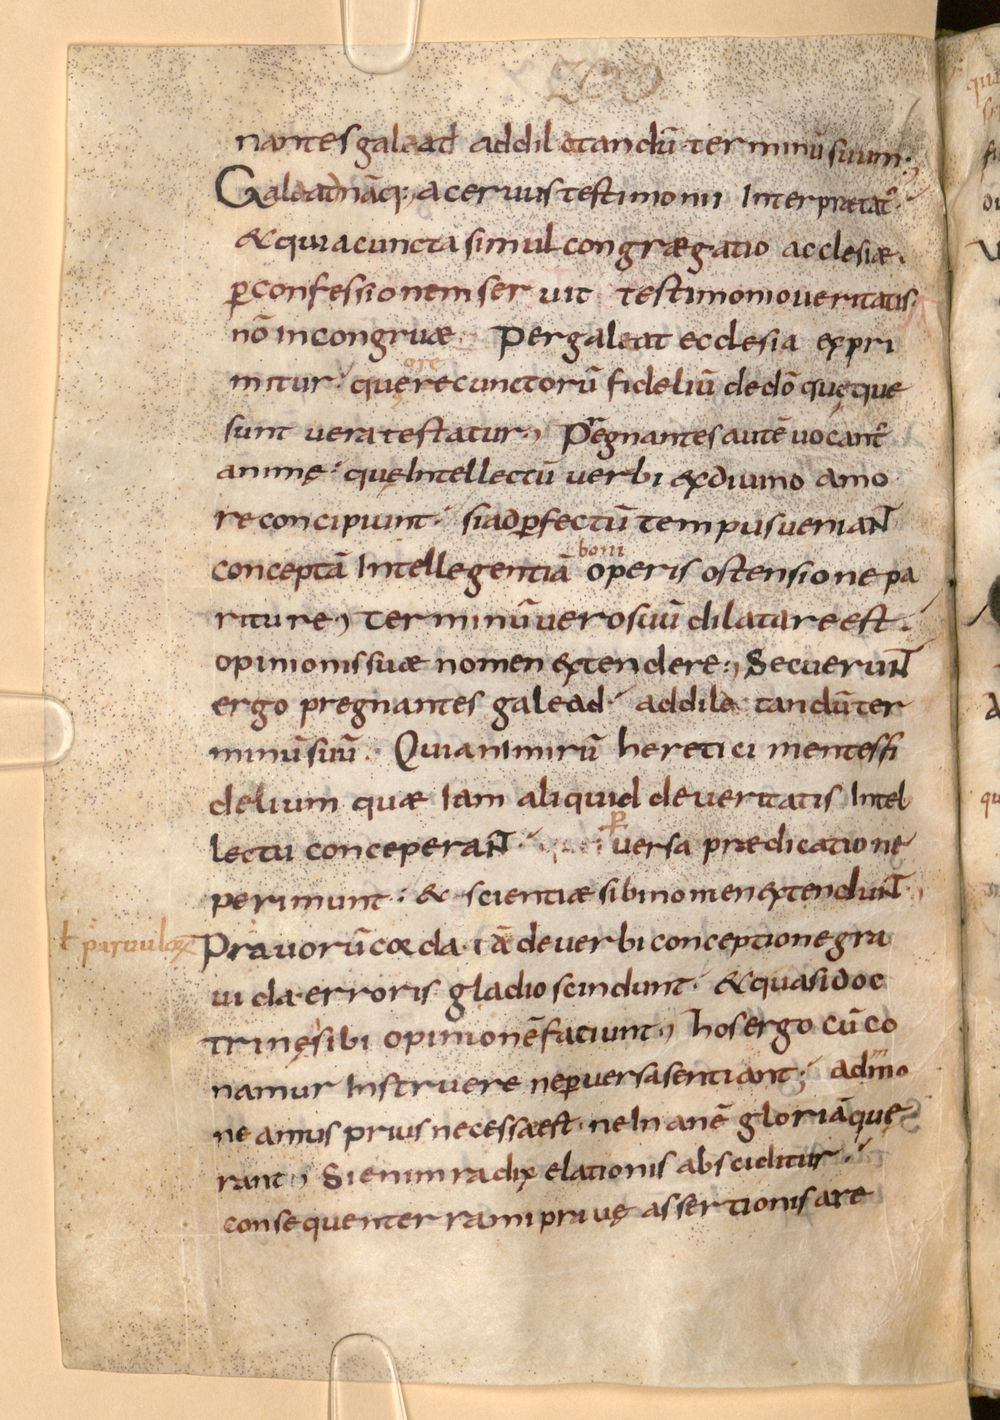 nantes galaad addilatandū terminū suum·,
Galaad nāq·, aceruus testimonii Interpraetat̄·
& quia cuncta simul congrægatio acclesiæ·
ꝑ confessionem seruit testimonio ueritatis·
nō incongruæ· Per galaat ecclesia expri
mitur· que ore cunctorū fideliū de dō quęque
sunt uera testatur·, P̄egnantes autē uocant̄
animę· quę Intellectū uerbi ex diuino amo
re concipiunt· si ad ꝑfectū tempus ueniaNT
conceptā Intellegentiā boni operis ostensione pa
riture, Terminū uero suū dilatare est·
opinionis suæ nomen extendere·, SecueruNT
ergo pregnantes galead· addila tandū ter
minū suū· Quia nimirū heretici mentes fi
delium quæ Iam aliquid de ueritatis Intel
lectu conceperaNT· ꝑuersa prædicatione
perimunt· & scientiæ sibi nomen extenduNT·,
ƚ paruuloꝝ
Prauorū corda· iā de uerbi conceptione gra
uida· erroris gladio scindunt· & quasi doc
trinę sibi opinionē faciunt, hos ergo cū co
namur Instruere ne ꝑuersa sentiant; admo
neamus prius necesse est· ne Inanē gloriā quę
rant·, Si enim radix elationis absciditur·
consequenter rami priuę assertionis are